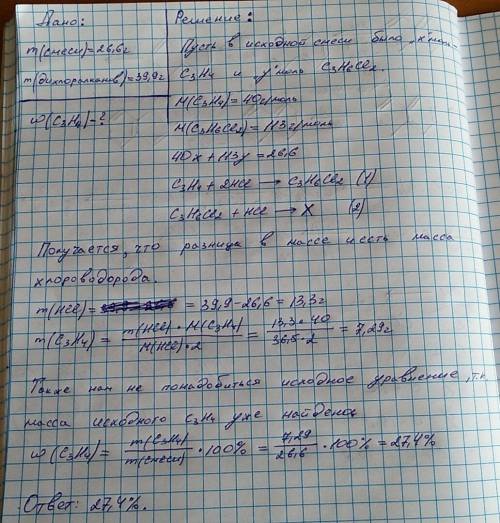 Дано:
m(смеси)=26,6г
m(дихлоралканов)=39,9г
ω(C3H4)-?
Решение:
Пусть в исходной смеси было "x" моль
C3H4 и "y" моль C3H6Cl2.
M(C3H4)=40г/моль
M(C3H6Cl2)=113г/моль
40x+113y=26,6
C3H4 + 2HCl → C3H6Cl2 (1)
C3H6Cl2 + HCl → X (2)
Получается, что разница в массе и есть масса
хлороводорода.
m(HCl) = = 39,9-26,6 = 13,3г
m(C3H4) = m(HCl)·M(C3H4) / M(HCl)·2 = 13,3·40 / 36,5·2 = 7,29г
Также нам не понадобиться исходное уравнение, т.к
масса исходного C3H4 уже найдено
ω(C3H4) = m(C3H4) / m(смеси) ·100% = 7,29 / 26,6 ·100% = 27,4%
Ответ: 27,4%.